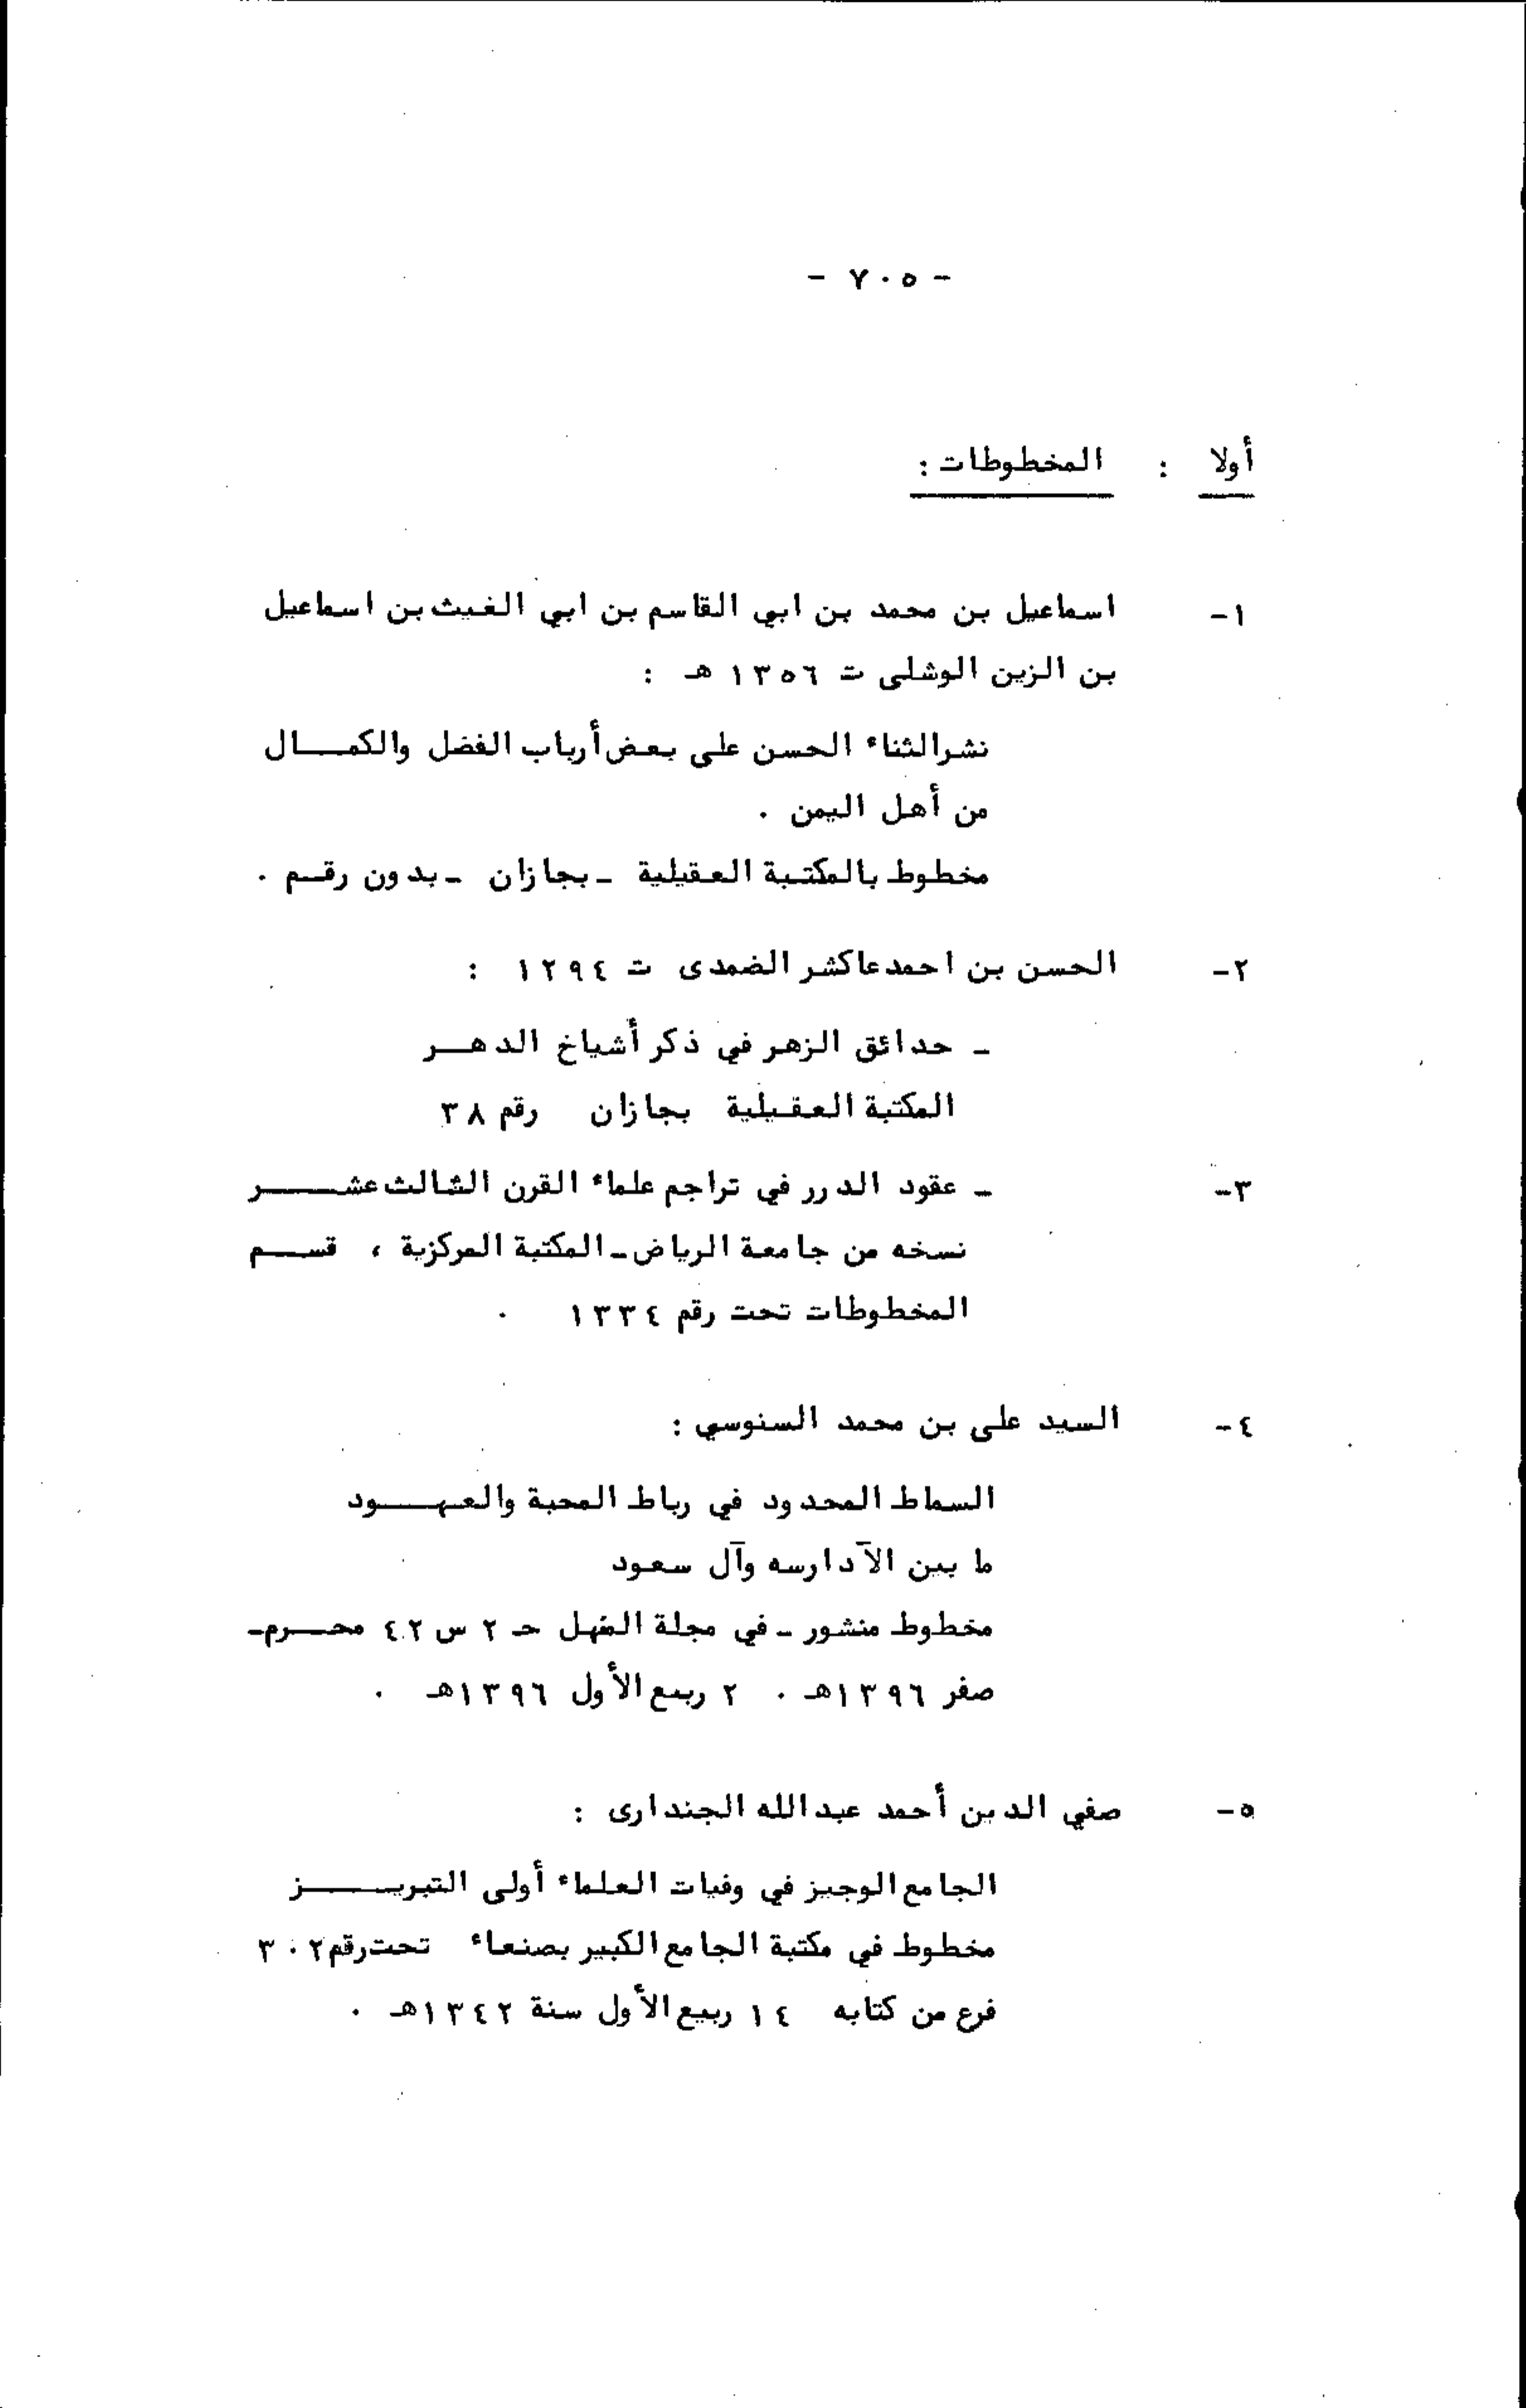 - ٧٠٥ -
أولا : المخطوطات :
١- اسماعيل بن محمد بن ابي القاسم بن ابي الغيث بن اسماعيل
بن الزين الوشلى ت ١٣٥٦ هـ :
نشر الثناء الحسن على بعض أرباب الفضل والكمال
من أهل اليمن .
مخطوط بالمكتبة العقيلية - بجازان - بدون رقم .
٢- الحسن بن احمد عاكشر الضمدى ت ١٢٩٤ :
- حدائق الزهر في ذكر أشياخ الدهر
المكتبة العقيلية بجازان رقم ٣٨
٣- - عقود الدرر في تراجم علماء القرن الثالث عشر
نسخه من جامعة الرياض - المكتبة المركزية ، قسم
المخطوطات تحت رقم ١٣٣٤ .
٤- السيد على بن محمد السنوسي :
السماط المحدود في رباط المحبة والعهود
ما بين الآدارسه وآل سعود
مخطوط منشور - في مجلة المنهل حـ ٢ س ٤٢ محرم -
صفر ١٣٩٦هـ . ٢ ربيع الأول ١٣٩٦هـ .
٥- صفي الدين أحمد عبد الله الجندارى :
الجامع الوجيز في وفيات العلماء أولى التبريز
مخطوط في مكتبة الجامع الكبير بصنعاء تحت رقم ٣٠٢
فرع من كتابه ١٤ ربيع الأول سنة ١٣٤٢هـ .